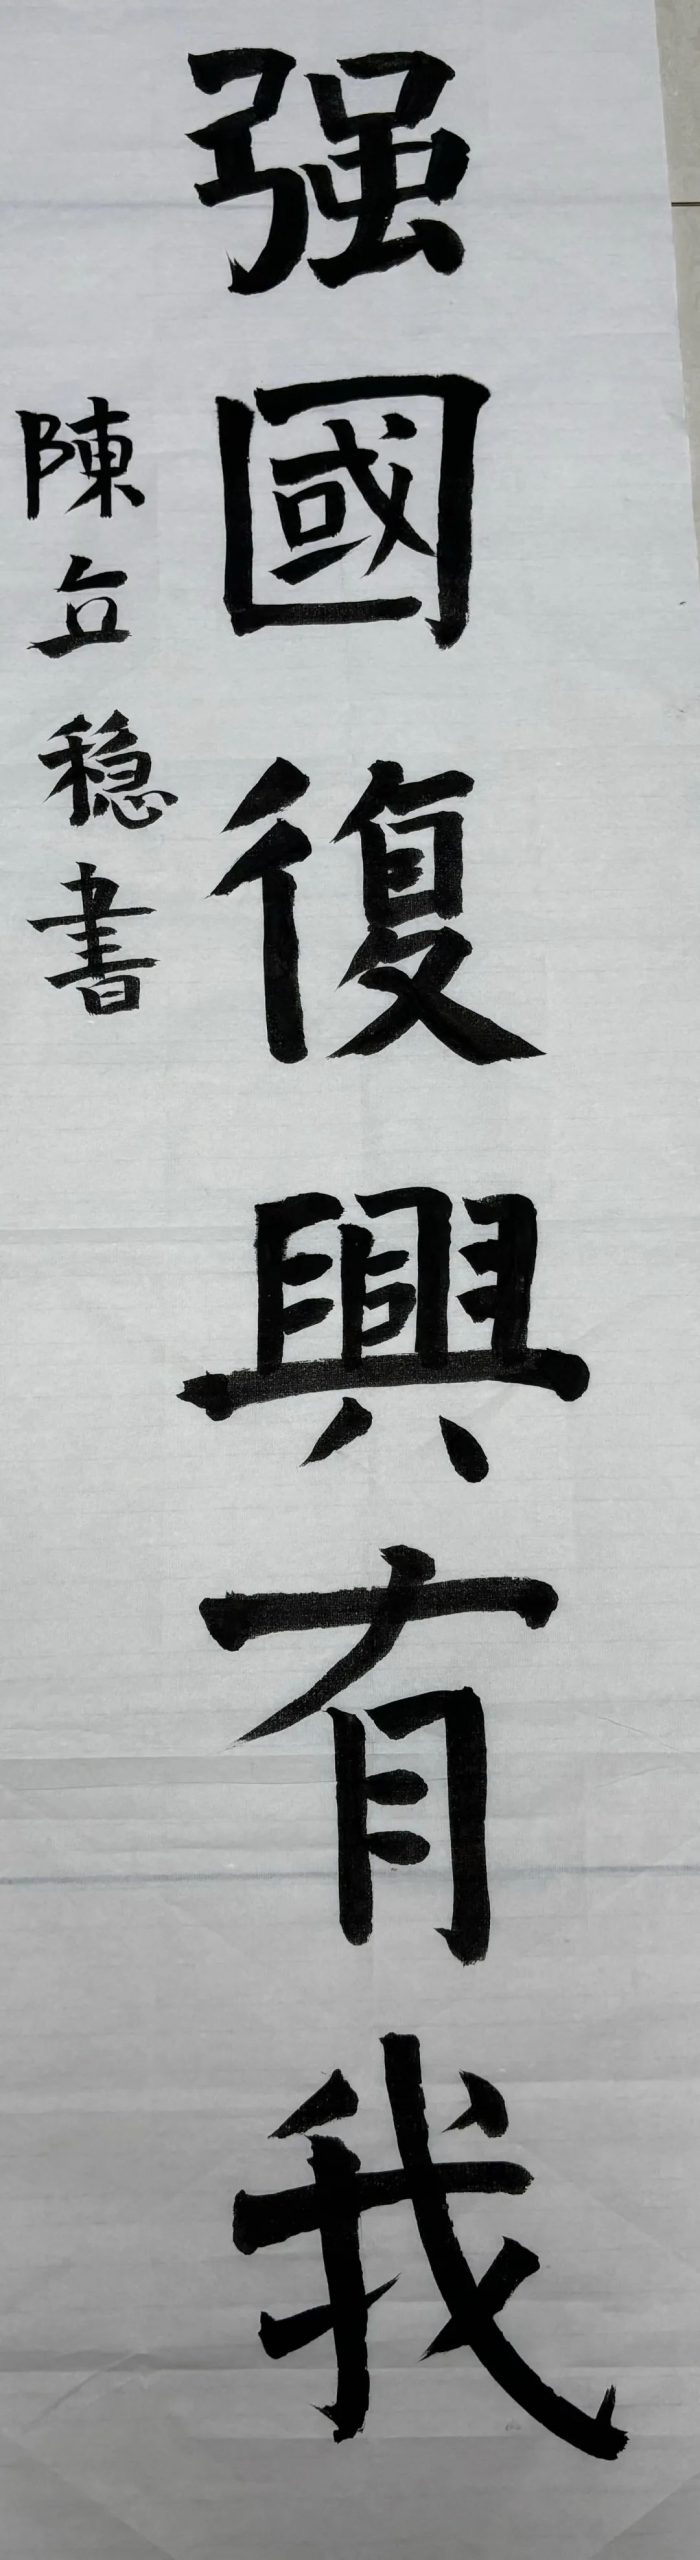 强國復興有我
陳立穏書